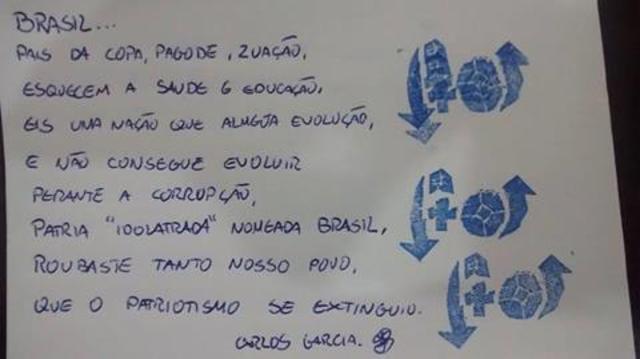 BRASIL...
PAIS DA COPA, PAGODE, ZUAÇÃO,
ESQUECEM A SAUDE E EDUCAÇÃO,
EIS UMA NAÇÃO QUE ALMEJA EVOLUÇÃO,
E NÃO CONSEGUE EVOLUIR
PERANTE A CORRUPÇÃO,
PATRIA "IDOLATRADA" NOMEADA BRASIL,
ROUBASTE TANTO NOSSO POVO,
QUE O PATRIOTISMO SE EXTINGUIO.
CARLOS GARCIA.